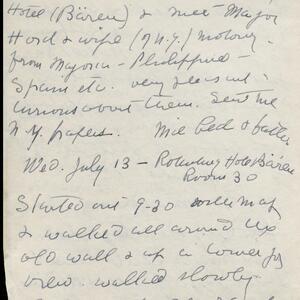 Hotel (Bären) & met Major
Hord & wife (of N.Y.) motoring
from Majorca – Philippines –
Spain etc. very pleasant –
curious about them. Sent me
N.Y. papers. Nice bed & bath
Wed. July 13 – Rothenburg Hotel Bären
Room 30
Started out 9-30 with map
& walked all around up
old wall & up in tower for
view. walked slowly